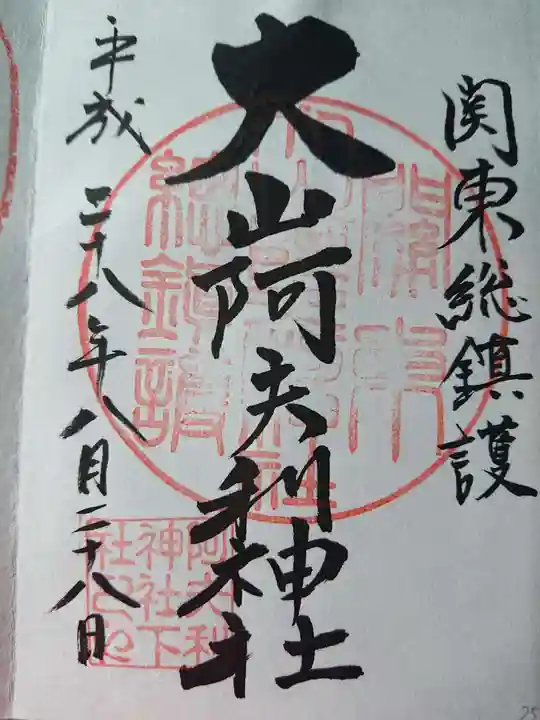 関東総鎮護
大山阿夫利神社
平成二十八年八月二十八日
關東
總鎮護
阿夫利
神社下
社之印
25